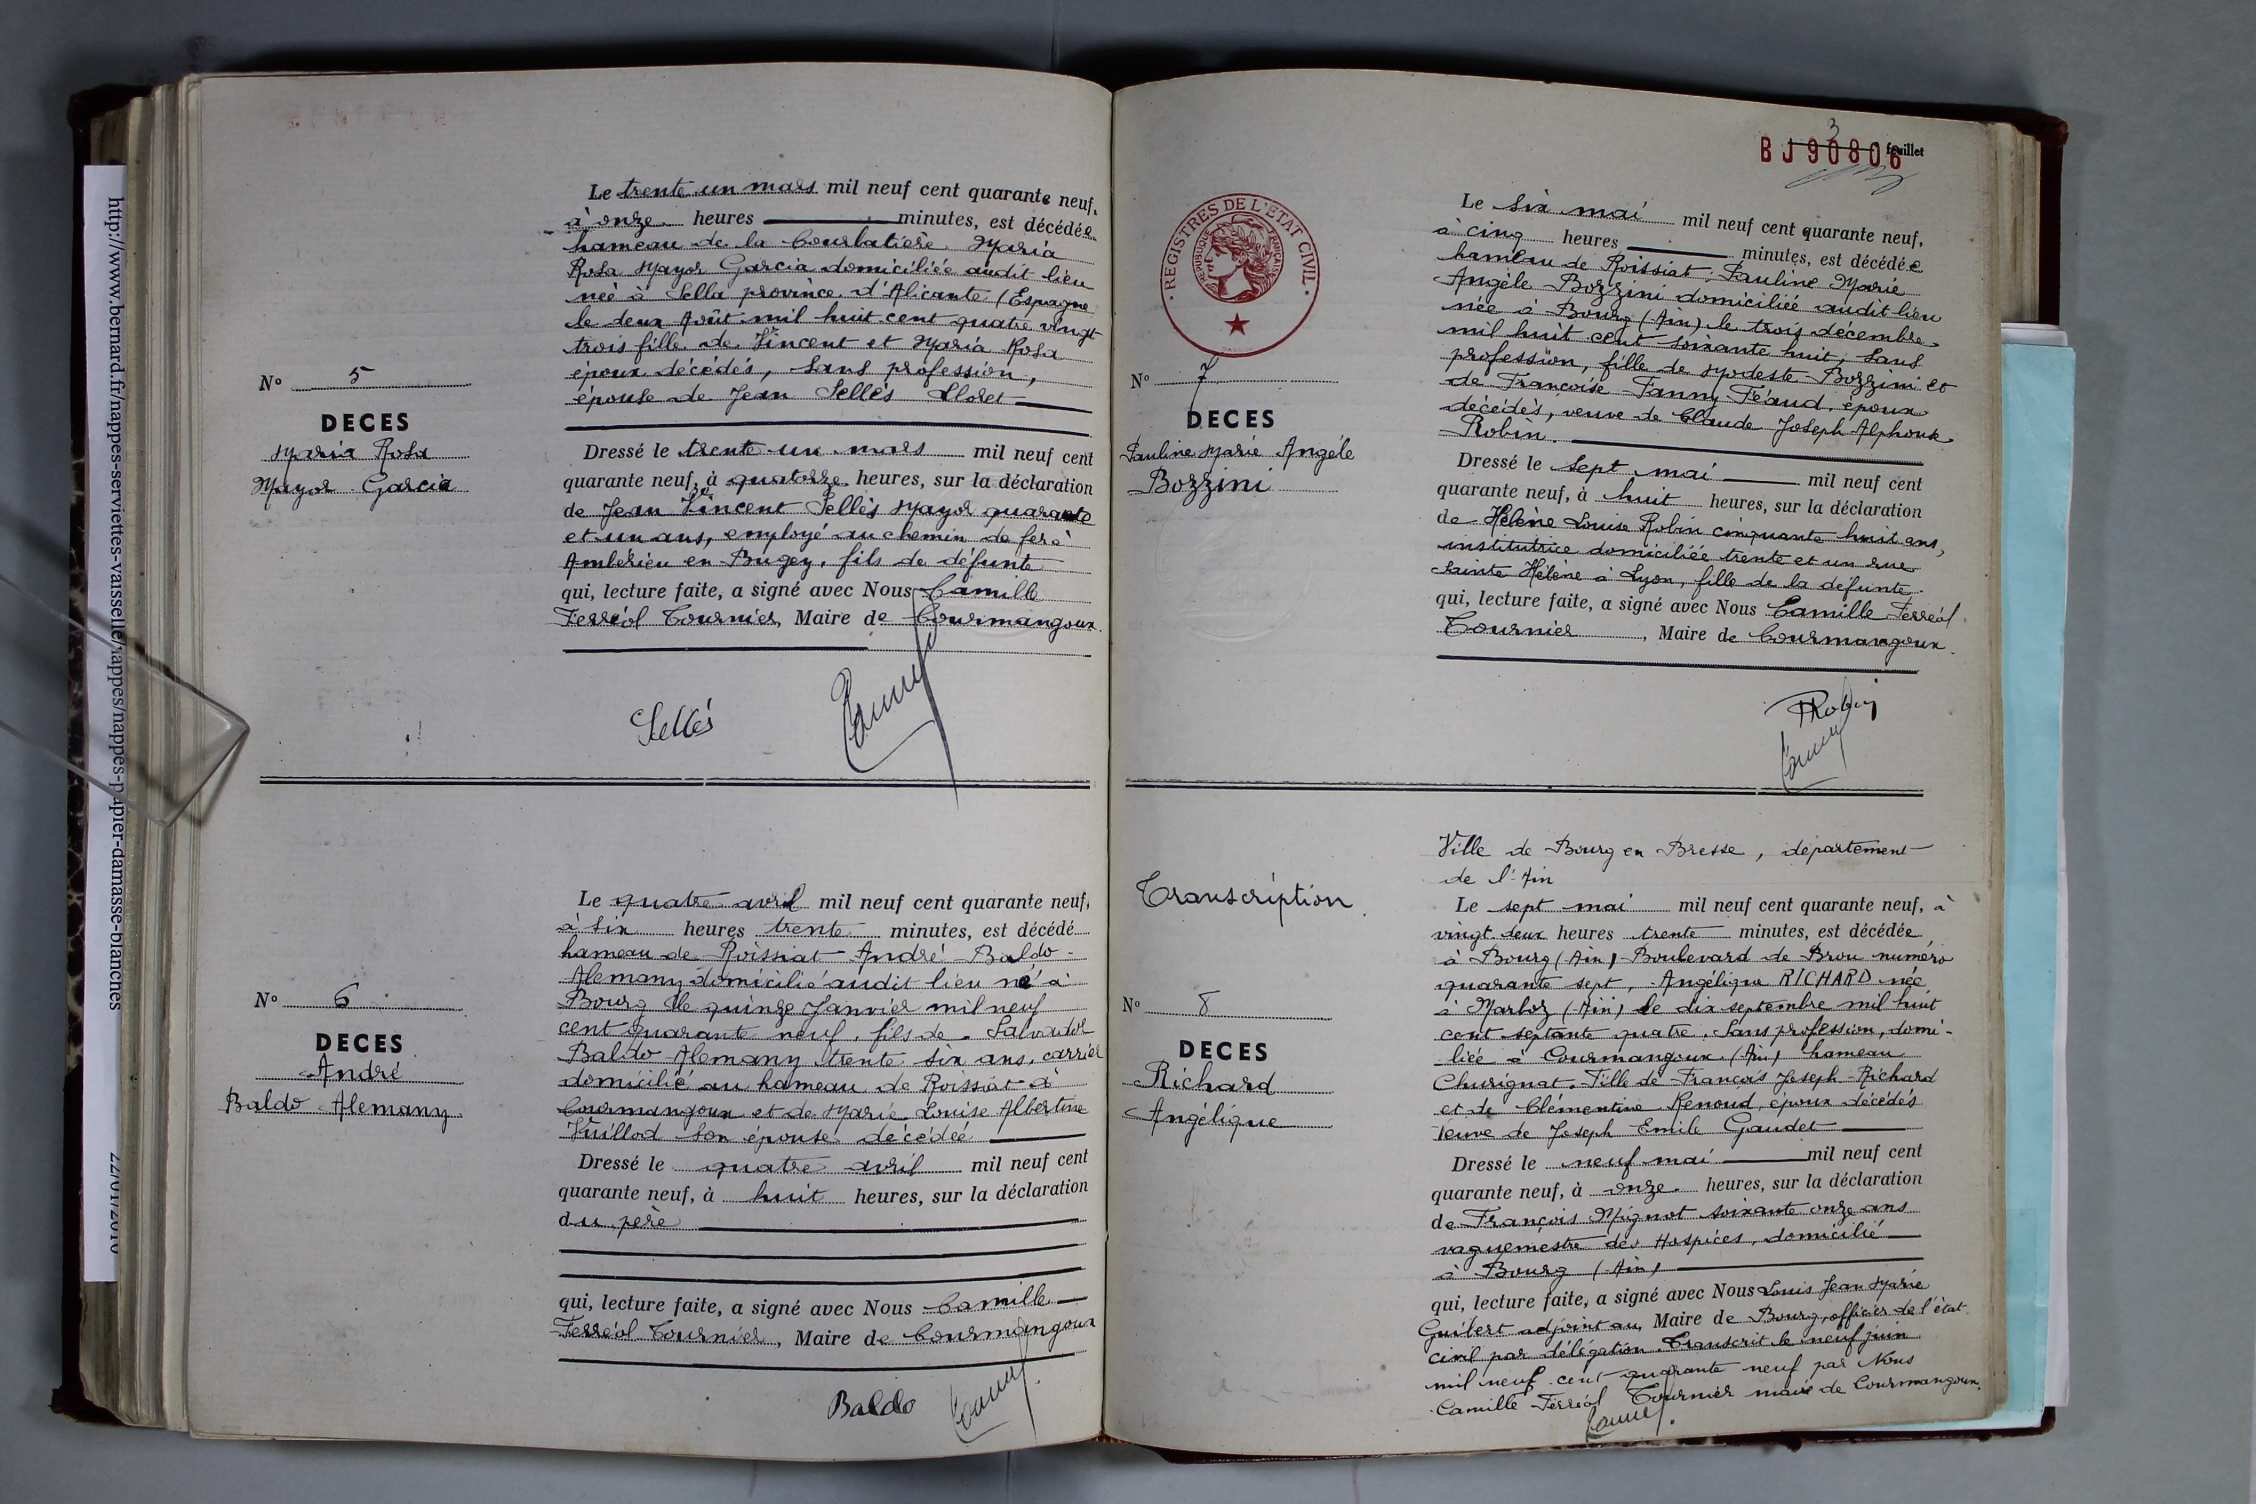 Le trente un mars mil neuf cent quarante neuf,
à onze heures minutes, est décédée
hameau de la Courbatière Maria
Rosa Mayor Garcia domiciliée audit lieu
née à Sella province d'Alicante (Espagne
le deux Août mil huit cent quatre vingt
trois fille de Vincent et Maria Rosa
époux décédés, sans profession,
épouse de Jean Sellés Lloret
N° 5
DECES
Maria Rosa
Mayor Garcia
Dressé le trente un mars mil neuf cent
quarante neuf, à quatorze heures, sur la déclaration
de Jean Vincent Sellés Mayor quarante
et un ans, employé au chemin de fer à
Ambérieu en Bugey, fils de défunte
qui, lecture faite, a signé avec Nous Camille
Ferréol Tournier, Maire de Courmangoux.
Sellés
Le quatre avril mil neuf cent quarante neuf,
à six heures trente minutes, est décédé
hameau de Roissiat André Baldo
Alemany domicilié audit lieu né à
Bourg le quinze Janvier mil neuf
cent quarante neuf, fils de Salvador
Baldo Alemany trente six ans, carrier
domicilié au hameau de Roissiat à
Courmangoux et de Marie Louise Albertine
Vuillod son épouse décédée
N° 6
DECES
André
Baldo Alemany
Dressé le quatre avril mil neuf cent
quarante neuf, à huit heures, sur la déclaration
du père
qui, lecture faite, a signé avec Nous Camille
Ferréol Tournier, Maire de Courmangoux
Baldo
3
BJ90806 feuillet
REGISTRES DE L'ETAT CIVIL
REPUBLIQUE FRANÇAISE
Le six mai mil neuf cent quarante neuf,
à cinq heures minutes, est décédée
hameau de Roissiat, Pauline Marie
Angèle Bozzini domiciliée audit lieu
née à Bourg (Ain) le trois décembre
mil huit cent soixante huit, sans
profession, fille de Modeste Bozzini et
de Françoise Fanny Féaud, époux
décédés, veuve de Claude Joseph Alphonse
Robin.
N° 7
DECES
Pauline Marie Angèle
Bozzini
Dressé le sept mai mil neuf cent
quarante neuf, à huit heures, sur la déclaration
de Hélène Louise Robin cinquante huit ans,
institutrice domiciliée trente et un rue
Sainte Hélène à Lyon, fille de la défunte.
qui, lecture faite, a signé avec Nous Camille Ferréol
Tournier, Maire de Courmangoux.
HRobin
Transcription
Ville de Bourg en Bresse, département
de l'Ain
Le sept mai mil neuf cent quarante neuf, à
vingt deux heures trente minutes, est décédée
à Bourg (Ain) Boulevard de Brou numéro
quarante sept, Angélique RICHARD née
à Marboz (Ain) le dix septembre mil huit
cent septante quatre. Sans profession, domi-
liée à Courmangoux (Ain) hameau
Chevignat. Fille de François Joseph Richard
et de Clémentine Renoud, époux décédés
Veuve de Joseph Emile Gaudet
N° 8
DECES
Richard
Angélique
Dressé le neuf mai mil neuf cent
quarante neuf, à onze heures, sur la déclaration
de François Mignot soixante onze ans
vaguemestre des Hospices, domicilié
à Bourg (Ain)
qui, lecture faite, a signé avec Nous Louis Jean Marie
Guibert adjoint au Maire de Bourg, officier de l'état
civil par délégation. Transcrit le neuf juin
mil neuf cent quarante neuf par Nous
Camille Ferréol Tournier maire de Courmangoux.
http://www.bernard.fr/nappes-serviettes-vaisselle/nappes/nappes-papier-damasse-blanches
22/01/2010